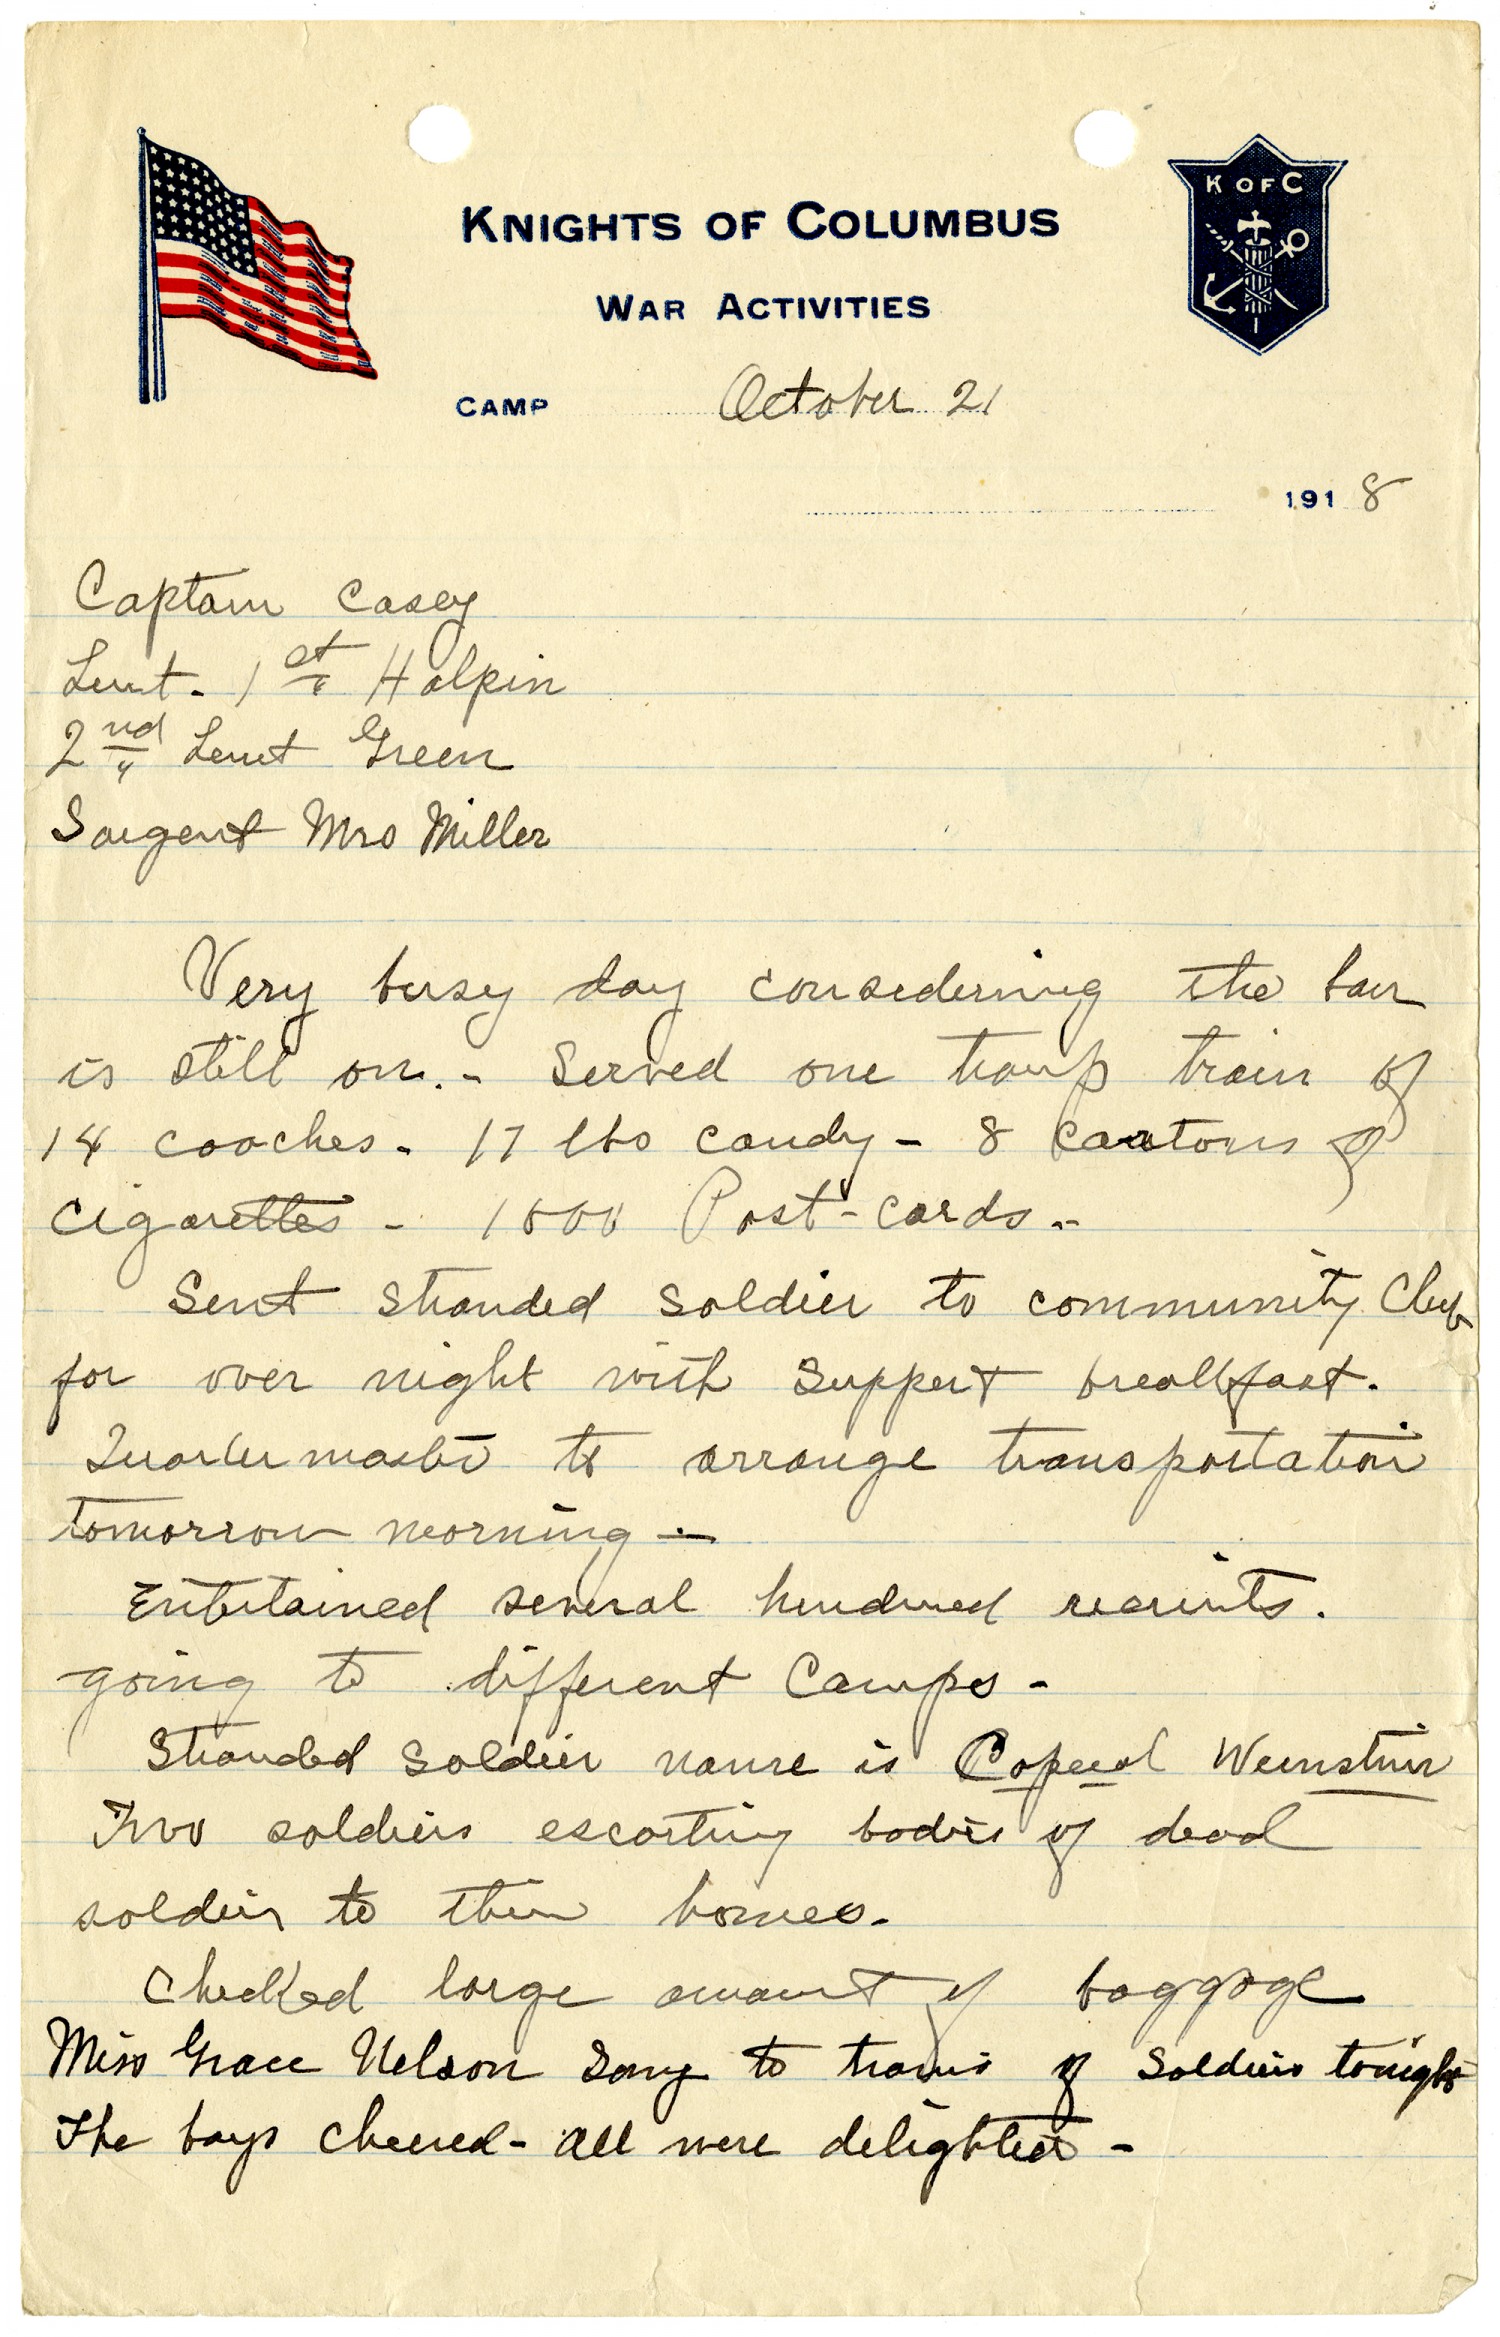 K OF C
KNIGHTS OF COLUMBUS
WAR ACTIVITIES
CAMP October 21
1918
Captain Casey
Leut. 1st Halpin
2nd Leut Green
Sargent Mrs Miller
Very busy day considering the ban
is still on. - Served one troup train of
14 coaches. 17 lbs candy - 8 cartons of
cigarettes - 1000 Post-cards -
Sent stranded soldier to community Club
for over night with Supper & breakfast.
Quartermaster to arrange transportation
tomorrow morning -
Entertained several hundred recruits.
going to different Camps -
Stranded soldier name is Weinstein
Two soldiers escorting bodies of dead
soldiers to their homes.
Checked large amount of baggage
Miss Grace Nelson Sang to trains of Soldiers tonight
The boys cheered - all were delighted -